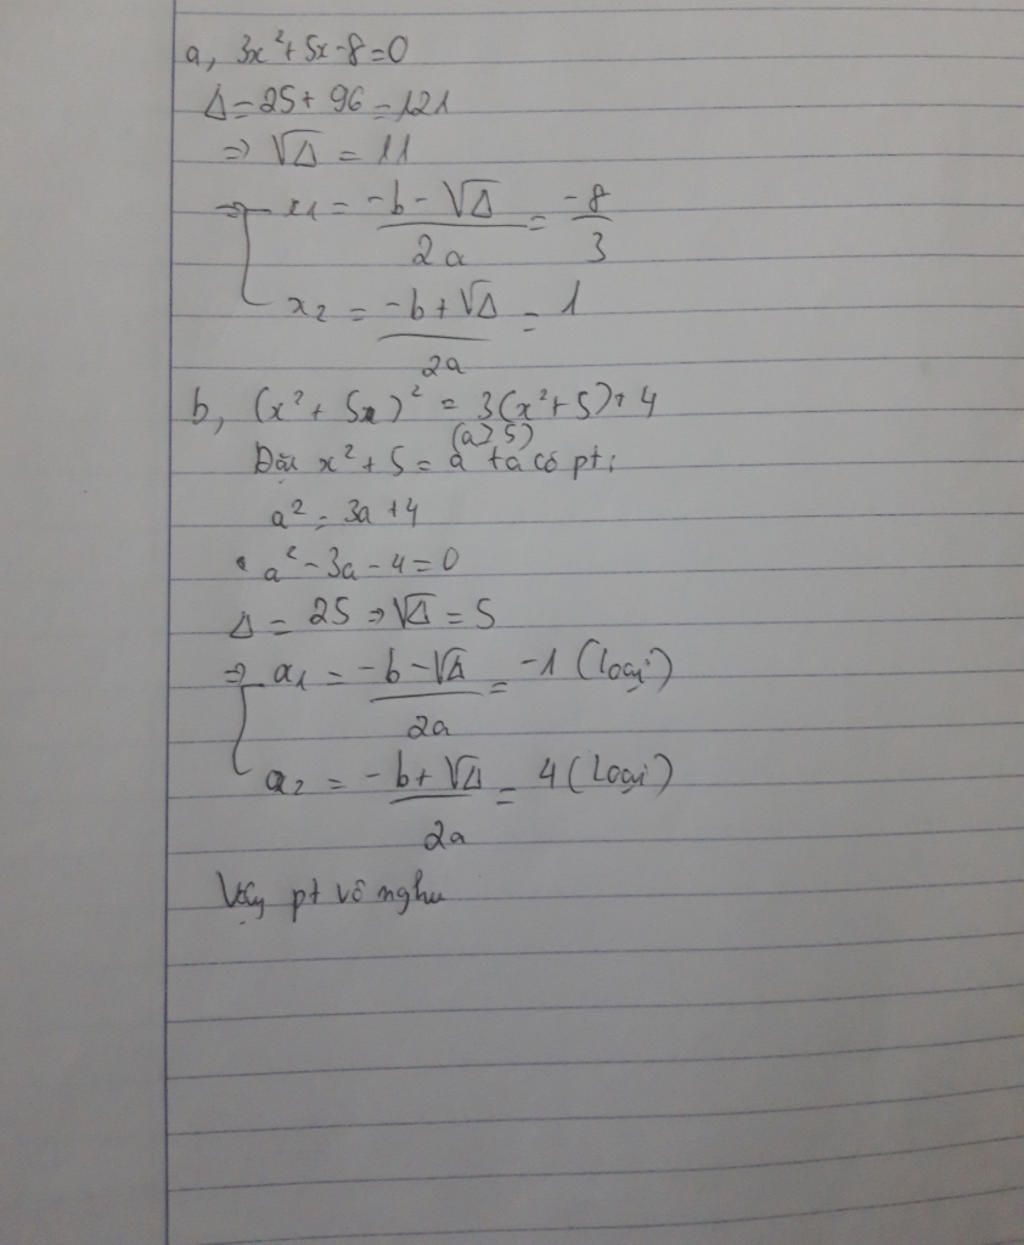 a, 3x²+5x-8=0
Δ=25+96=121
⇒ √Δ = 11
⇒ x1 = (-b-√Δ)/2a = -8/3
x2 = (-b+√Δ)/2a = 1
b, (x²+5x)² = 3(x²+5)+4
(a≥5)
Đặt x²+5 = a ta có pt:
a² = 3a+4
a²-3a-4=0
Δ = 25 ⇒ √Δ = 5
⇒ a1 = (-b-√Δ)/2a = -1 (loại)
a2 = (-b+√Δ)/2a = 4 (Loại)
Vậy pt vô